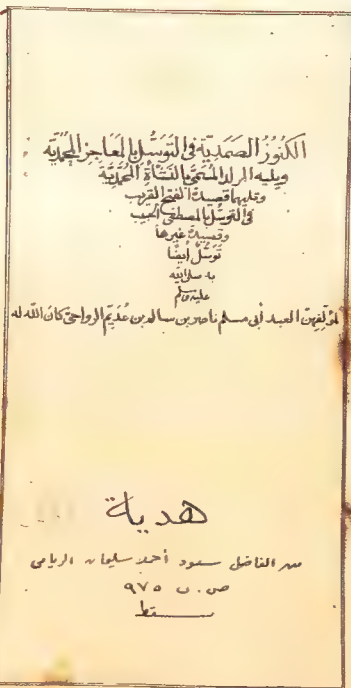 الكنوز الصمدية في التوسل بالمعاجز المحمدية
ويليه المولد المسمى بالنشأة المحمدية
وتليهما قصيدة الفتح القريب
في التوسل بالمصطفى الحبيب
وقصيدة غيرها
توسل أيضا
به صلى الله
عليه وسلم
لمؤلفهن العبد أبي مسلم ناصر بن سالم بن عديم الرواحي كان الله له
هدية
من الفاضل سعود أحمد سليمان الريامي
ص. ب ٩٧٥
مسقط